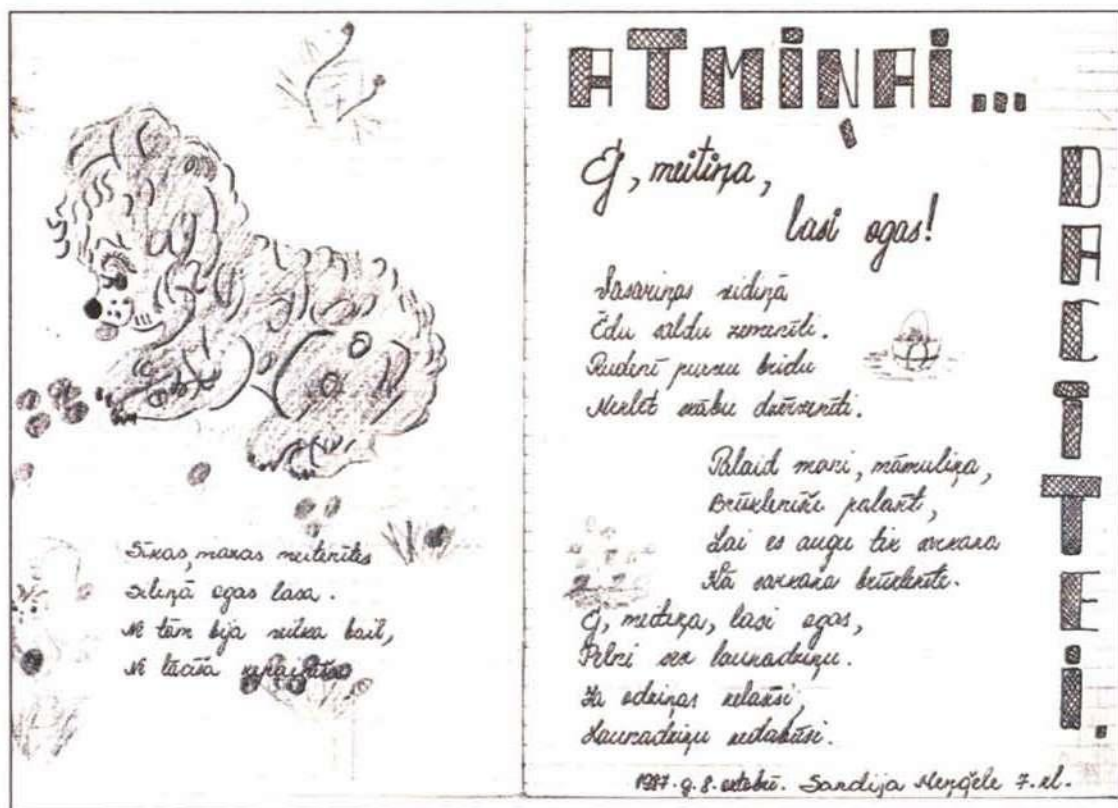 Sīkas, mazas meitenītes
Siliņā ogas lasa.
Ne tām bija vilka bail,
Ne lācīša ķepainīša
ATMIŅAI...
DACĪTEI.
Ej, meitiņa,
lasi ogas!
Vasariņas vidiņā
Ēdu saldu zemenīti.
Rudenī purvu bridu
Meklēt skābu dzērvenīti.
Palaid mani, māmuliņa,
palasīti,
Lai es augu tik sarkana
Kā sarkana brūklenīte.
Ej, meitiņa, lasi ogas,
Pelni sev launadziņu.
Ja odziņas nelasīsi,
Launadziņu nedabūsi.
1987. g. 8. oktobrī. Sandija Meņģele 7. kl.